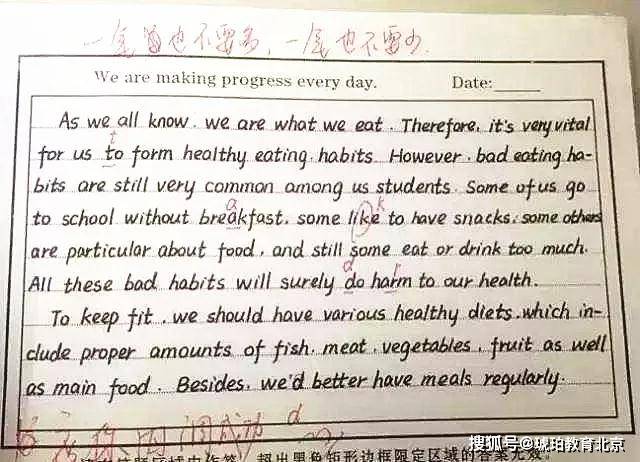 一尾曲也不要多，一尾也不要少.
We are making progress every day. Date:
As we all know, we are what we eat. Therefore, it's very vital
t
for us to form healthy eating habits. However, bad eating ha-
bits are still very common among us students. Some of us go
a k
to school without breakfast, some like to have snacks, some others
are particular about food, and still some eat or drink too much.
d r
All these bad habits will surely do harm to our health.
To keep fit, we should have various healthy diets, which in-
clude proper amounts of fish, meat, vegetables, fruit as well
as main food. Besides, we'd better have meals regularly.
成功 d
超出黑色矩形边框限定区域的答案无效
搜狐号@琥珀教育北京